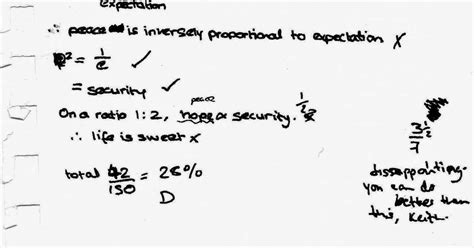 expectation
∴ peace is inversely proportional to expectation ✗
e² = 1/e ✓
= security ✓
peace
On a ratio 1:2, hope ∝ security. 1/2
∴ life is sweet ✗
total 42/150 = 28%
D
3½/7
disappointing.
you can do
better than
this, Keith.